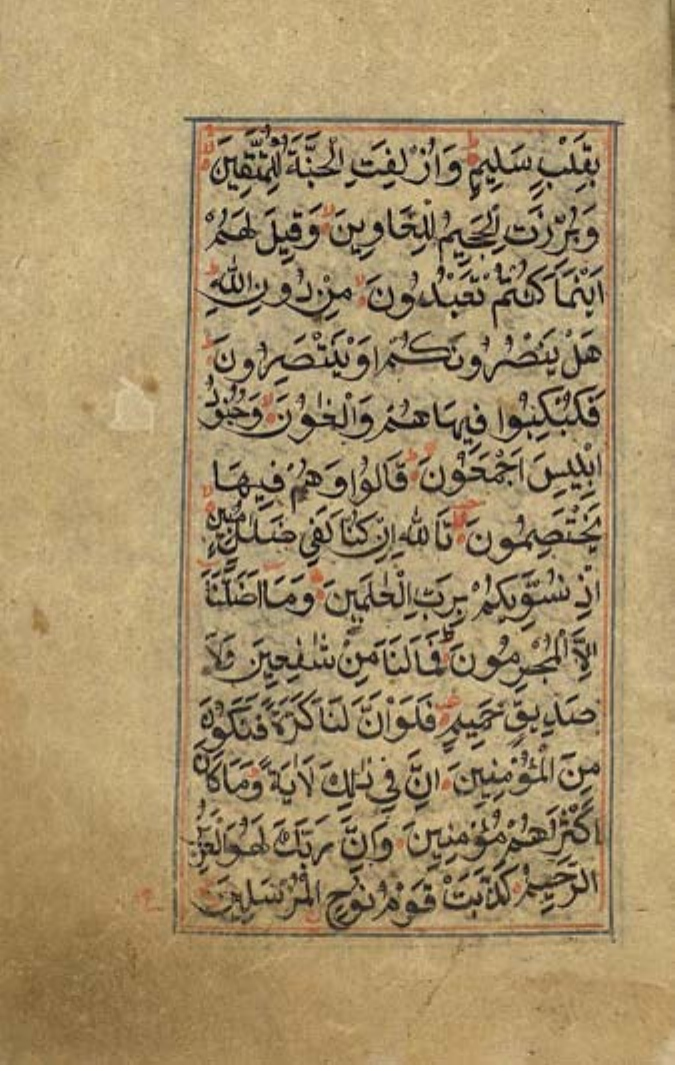 بِقَلْبٍ سَلِيمٍ وَاُزْلِفَتِ الْجَنَّةُ لِلْمُتَّقِينَ
وَبُرِّزَتِ الْجَحِيمُ لِلْغَاوِينَ وَقِيلَ لَهُمْ
اَيْنَمَا كُنْتُمْ تَعْبُدُونَ مِنْ دُونِ اللّٰهِ
هَلْ يَنْصُرُونَكُمْ اَوْ يَنْتَصِرُونَ
فَكُبْكِبُوا فِيهَا هُمْ وَالْغَاوُونَ وَجُنُودُ
اِبْلِيسَ اَجْمَعُونَ قَالُوا وَهُمْ فِيهَا
يَخْتَصِمُونَ تَاللّٰهِ اِنْ كُنَّا لَفِي ضَلٰلٍ مُبِينٍ
اِذْ نُسَوِّيكُمْ بِرَبِّ الْعٰلَمِينَ وَمَا اَضَلَّنَا
اِلَّا الْمُجْرِمُونَ فَمَا لَنَا مِنْ شٰفِعِينَ وَلَا
صَدِيقٍ حَمِيمٍ فَلَوْ اَنَّ لَنَا كَرَّةً فَنَكُونَ
مِنَ الْمُؤْمِنِينَ اِنَّ فِي ذٰلِكَ لَاٰيَةً وَمَا كَانَ
اَكْثَرُهُمْ مُؤْمِنِينَ وَاِنَّ رَبَّكَ لَهُوَ الْعَزِيزُ
الرَّحِيمُ كَذَّبَتْ قَوْمُ نُوحٍ الْمُرْسَلِينَ